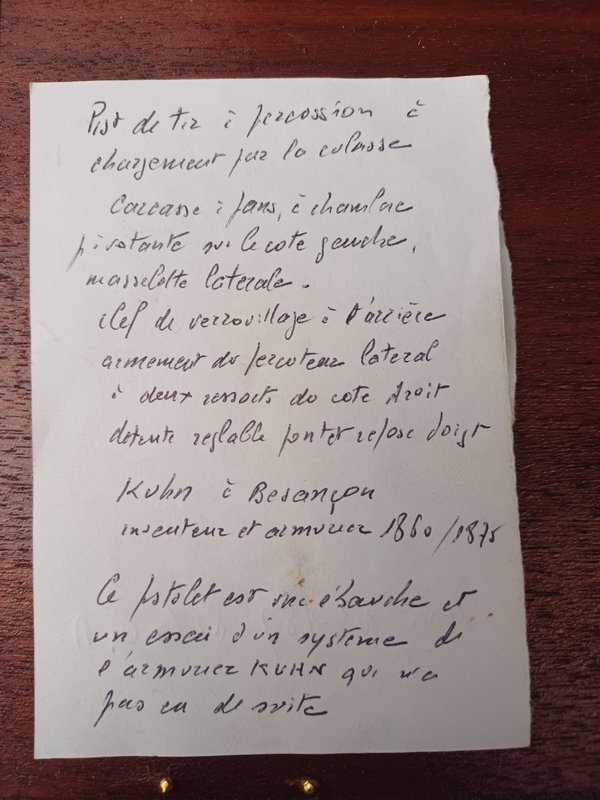 Pist de tir à percussion à
chargement par la culasse
Carcasse à pans, à chambre
pivotante sur le coté gauche,
masselotte laterale.
clef de verrouillage à l'arrière
armement du percuteur lateral
à deux ressorts du coté droit
detente reglable pontet repose doigt
Kuhn à Besançon
inventeur et armurier 1860/1875
Ce pistolet est une ébauche et
un essai d'un systeme de
l'armurier KUHN qui n'a
pas eu de suite